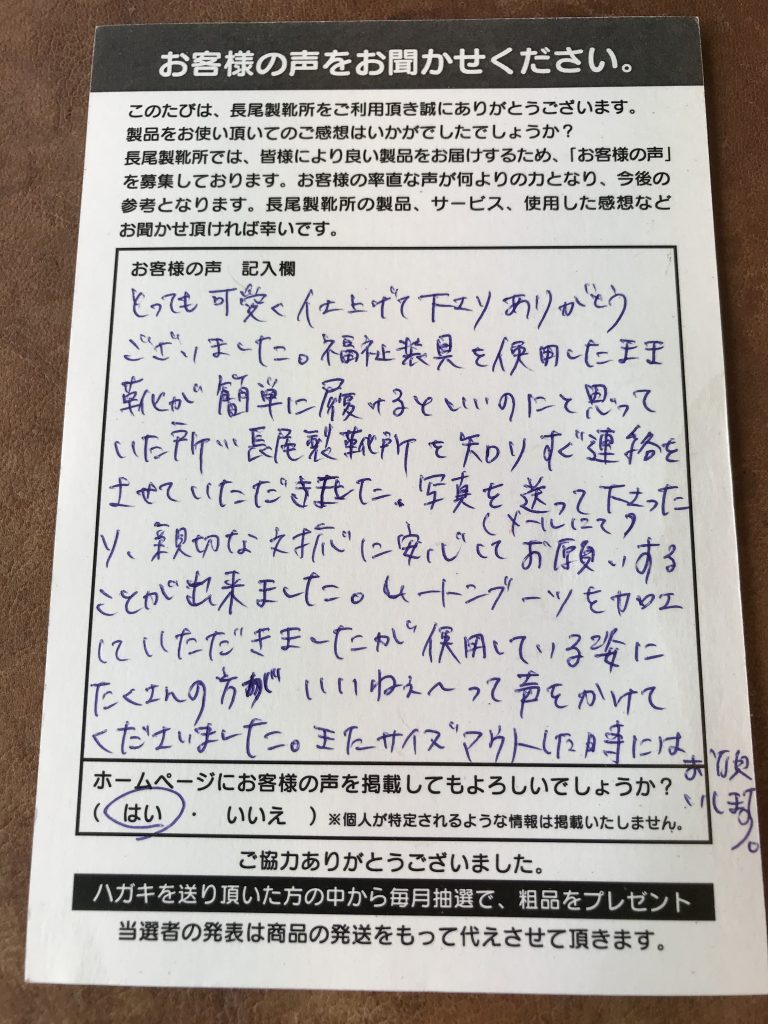 お客様の声をお聞かせください。
このたびは、長尾製靴所をご利用頂き誠にありがとうございます。
製品をお使い頂いてのご感想はいかがでしたでしょうか？
長尾製靴所では、皆様により良い製品をお届けするため、「お客様の声」
を募集しております。お客様の率直な声が何よりの力となり、今後の
参考となります。長尾製靴所の製品、サービス、使用した感想など
お聞かせ頂ければ幸いです。
お客様の声　記入欄
とっても可愛く仕上げて下さりありがとう
ございました。福祉装具を使用したまま
靴が簡単に履けるといいのにと思って
いた所…長尾製靴所を知りすぐ連絡を
させていただきました。写真を送って下さった
（メールにて）
り、親切な対応に安心してお願いする
ことが出来ました。ムートンブーツを加工
していただきましたが使用している姿に
たくさんの方が いいねぇ〜って声をかけて
くださいました。またサイズアウトした時には
お願
いします。
ホームページにお客様の声を掲載してもよろしいでしょうか？
（ はい ・ いいえ ）※個人が特定されるような情報は掲載いたしません。
ご協力ありがとうございました。
ハガキを送り頂いた方の中から毎月抽選で、粗品をプレゼント
当選者の発表は商品の発送をもって代えさせて頂きます。